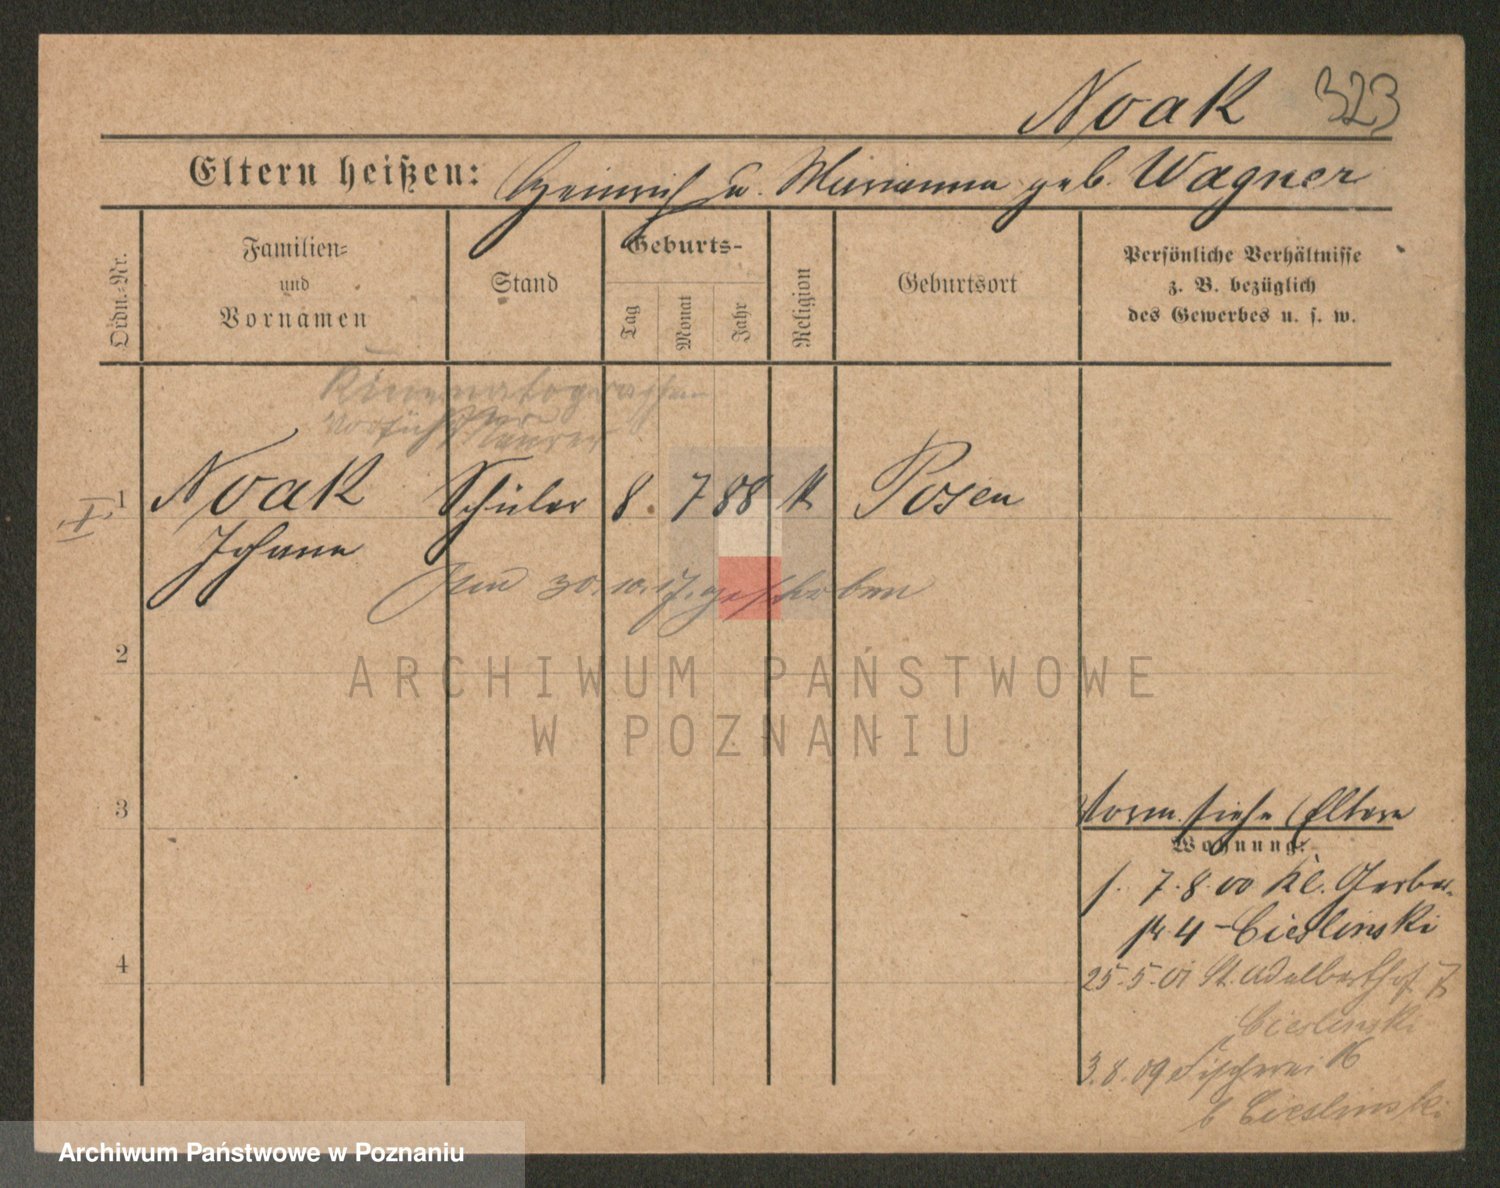 Noak 323
Eltern heißen: Heinrich u. Marianna geb. Wagner
Ordn.-Nr.
Familien-
und
Vornamen
Stand
Geburts-
Tag
Monat
Jahr
Religion
Geburtsort
Persönliche Verhältnisse
z. B. bezüglich
des Gewerbes u. s. w.
Kinematographen
Vorführer
Maurer
I. 1 Noak Schüler 8. 7 88 K Posen
Johann
30. 10. 17. geschoben
2
ARCHIWUM PAŃSTWOWE
W POZNANIU
3
Vorm. siehe Eltern
Wohnung:
7. 8. 00 Kl. Gerber-
str 4 - Cieslinski
4
25. 5. 01 St. Adalberthof 7
Cieslinski
3. 8. 09 Fischerei 16
b Cieslinski
Archiwum Państwowe w Poznaniu